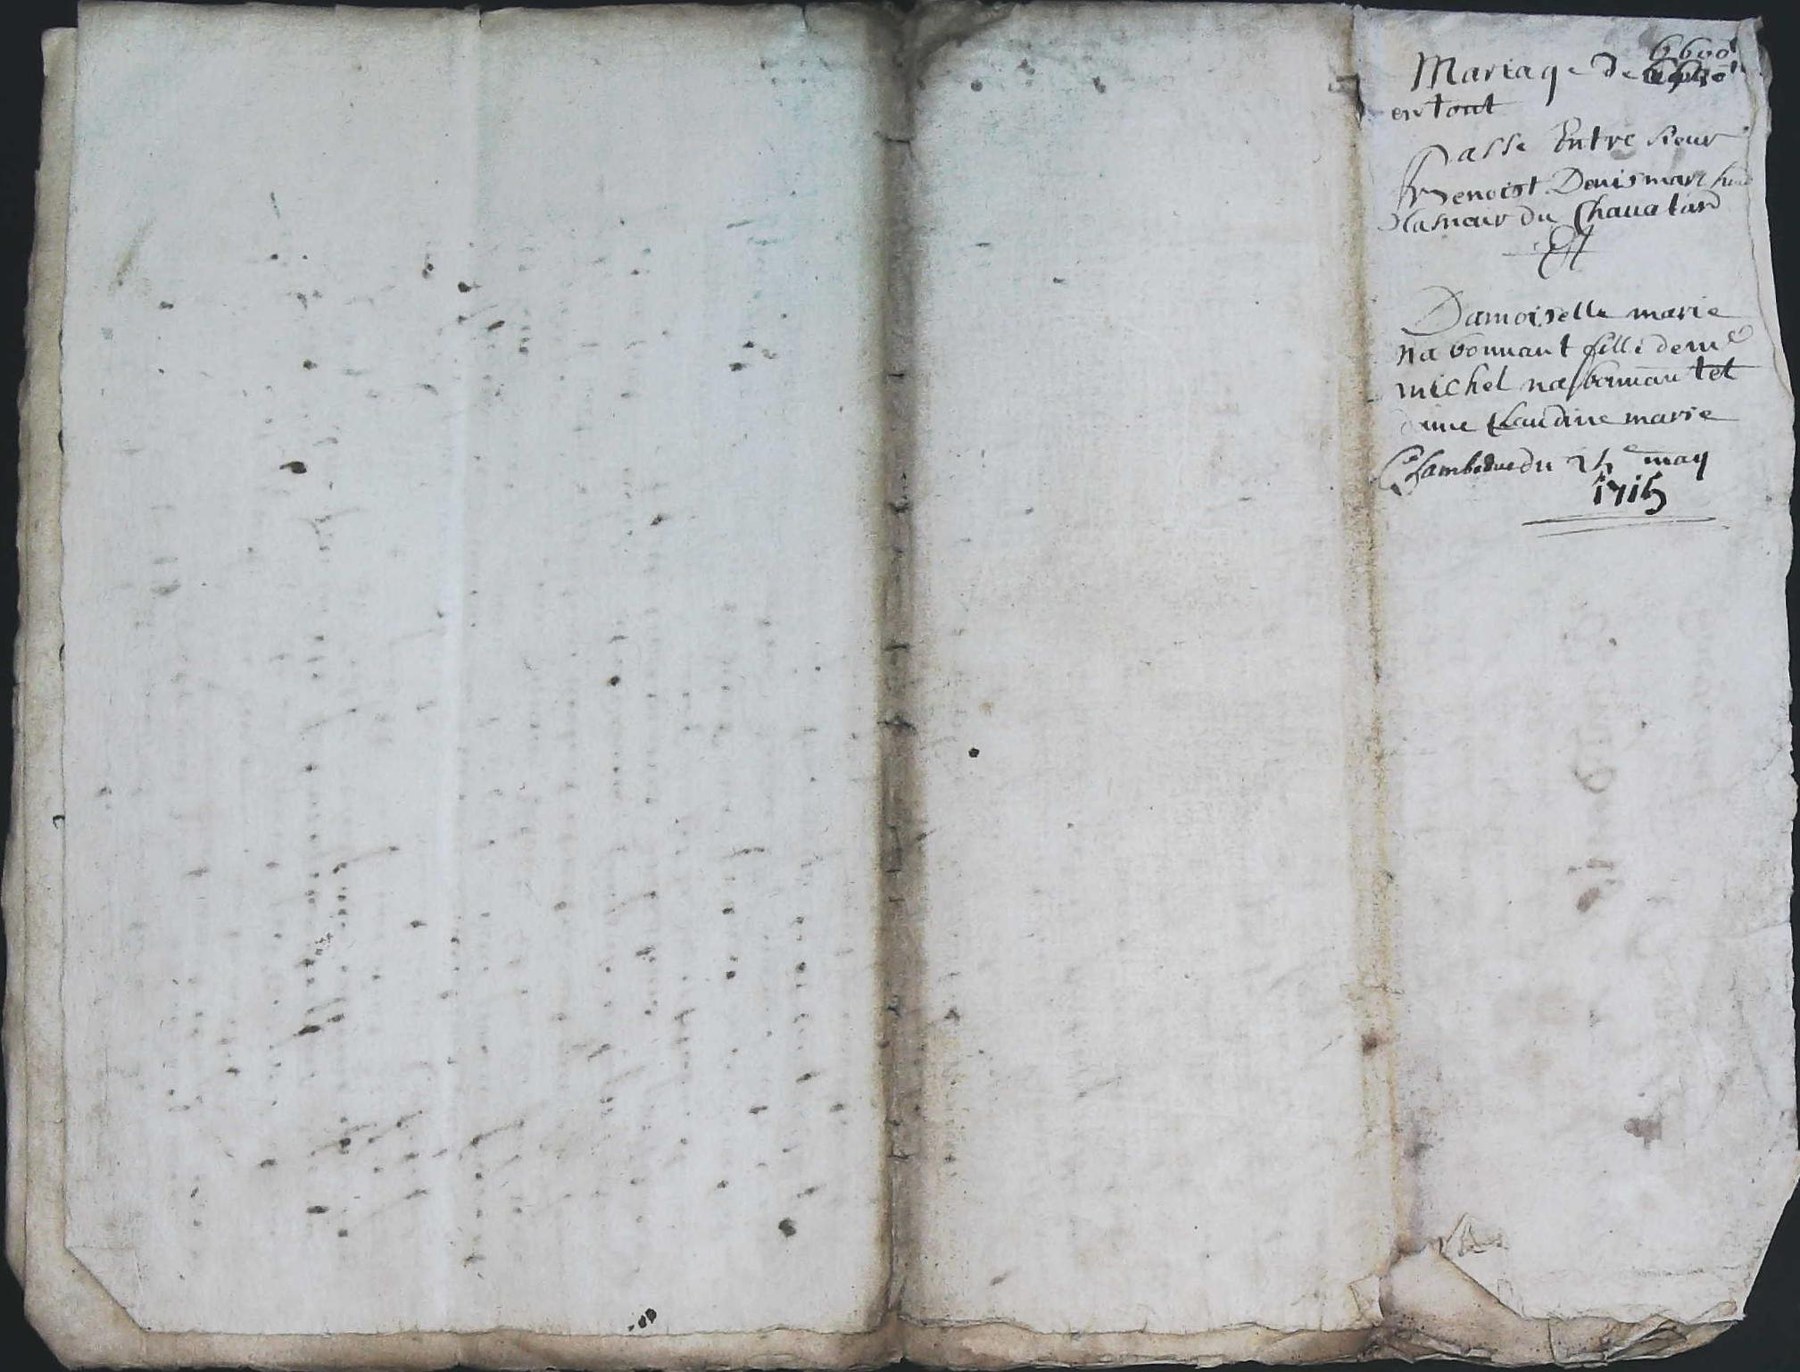 6600ᵗ
Mariage de
en tout
Passe Entre sieur
Benoist Denis marchand
du Chauatard
Et
Damoiselle marie
nabonnant fille de mᵉ
michel nabonnant et
dame Claudine marie
Chambodue du 25ᵉ may
1715